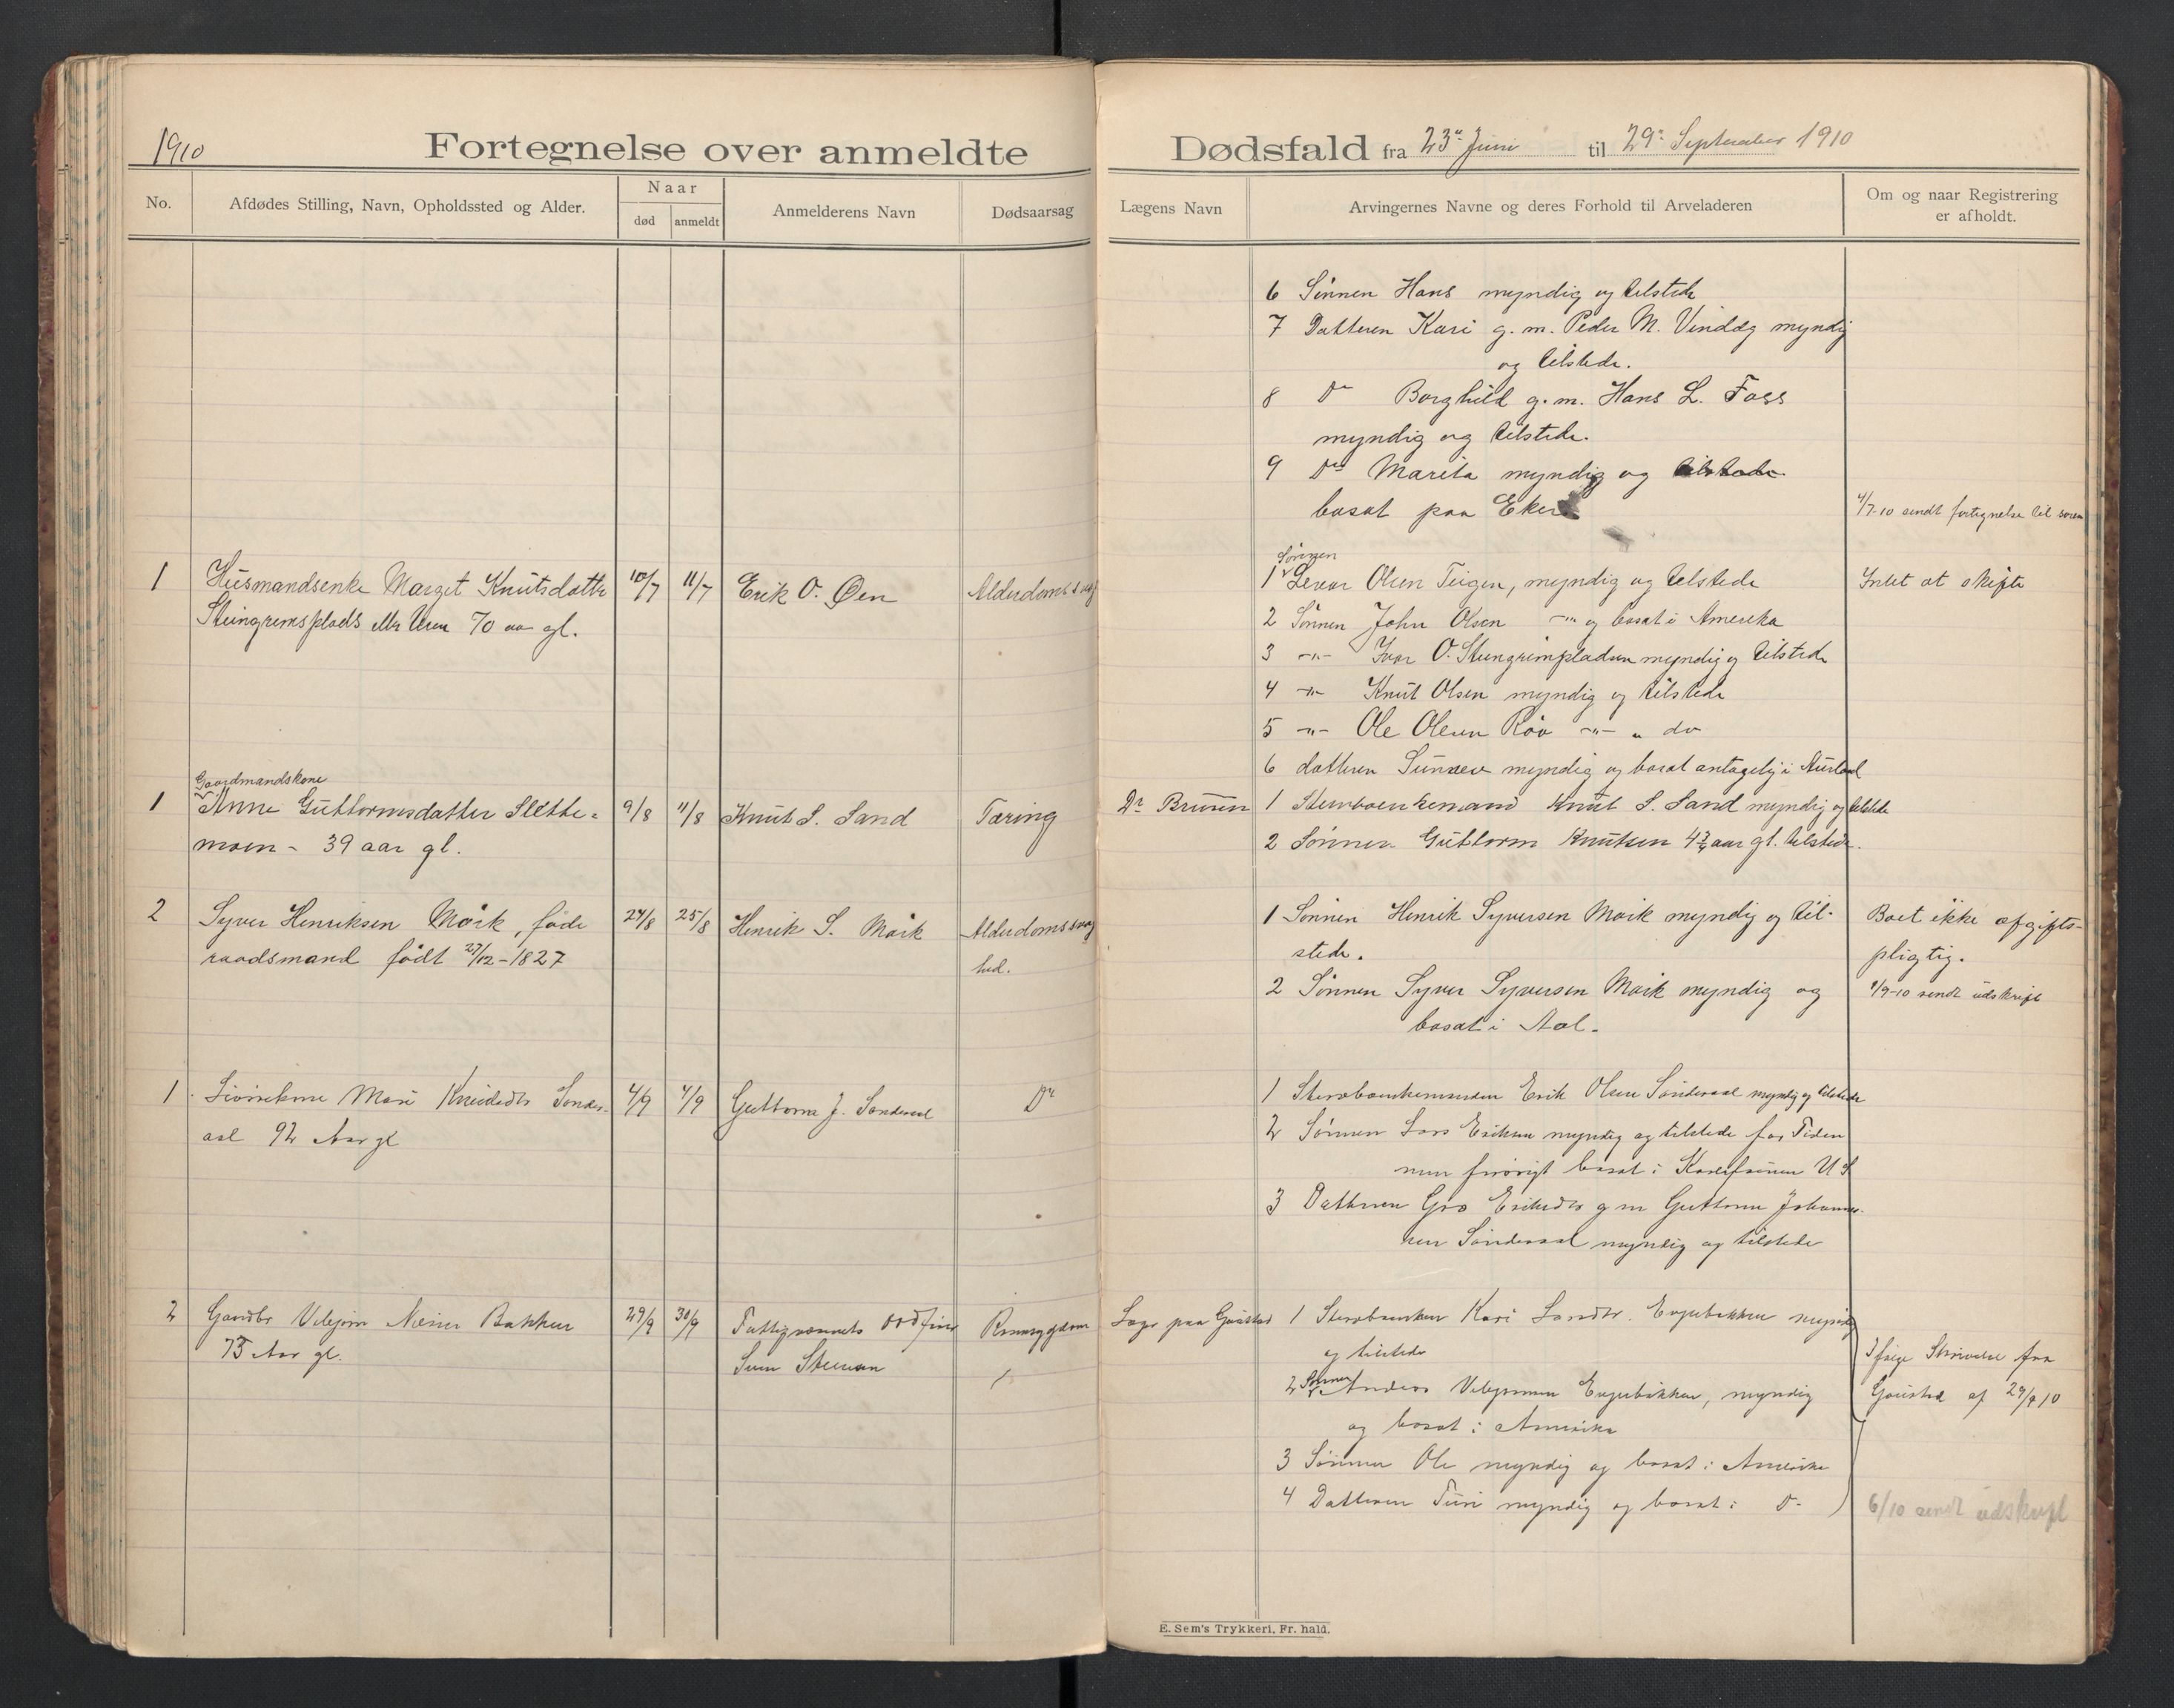 1910
Fortegnelse over anmeldte
Dødsfald fra 23de Juni til 29de September 1910
No.
Afdødes Stilling, Navn, Opholdssted og Alder.
Naar
død
anmeldt
Anmelderens Navn
Dødsaarsag
Lægens Navn
Arvingernes Navne og deres Forhold til Arveladeren
Om og naar Registrering
er afholdt.
6 Sønnen Hans myndig og tilstede
7 Datteren Kari g. m. Peder M. Vindæg myndig
og tilstede.
8 Do Borghild g. m. Hans L. Foss
myndig og tilstede.
9 Do Marita myndig og tilstede
bosat paa Eker
4/7-10 sendt fortegnelse til soren
1 Husmandsenke Marget Knutsdatter 10/7 11/7 Erik O. Øen Alderdomssvag
Steingrimsplads 70 aar gl.
Sønnen
1 Levor Olsen Teigen, myndig og tilstede
Intet at skifte
2 Sønnen John Olsen -"- og bosat i Amerika
3 -"- Ivar O. Steingrimpladsen myndig og tilstede
4 -"- Knut Olsen myndig og tilstede
5 -"- Ole Olsen Røo -"- " do
6 datteren Sunneve myndig og bosat antagelig i Aurland
Gaardmandskone
1 Anne Guttormsdatter Slette-
moen - 39 aar gl.
9/8 11/8 Knut S. Sand Tæring
Dr Bruun
1 Sterboenkemand Knut S. Sand myndig og tilstede
2 Sønnen Guttorm Knutsen 4 3/4 aar gl. tilstede.
2 Syver Henriksen Mørk, føde
raadsmand født 27/12-1827
24/8 25/8 Henrik S. Mørk Alderdomssvag
hed.
1 Sønnen Henrik Syversen Mørk myndig og til-
stede.
2 Sønnen Syver Syversen Mørk myndig og
bosat i Aal.
Boet ikke afgifts-
pligtig.
1/9-10 sendt udskrift
1 Mari Knudsdtr Sønder-
aal 92 Aar gl
4/9 4/9 Guttorm J. Sønderaal Do
1 Sterboenkemanden Erik Olsen Sønderaal myndig og tilstede
2 Sønnen Lars Eriksen myndig og tilstede for Tiden
men forøvrigt bosat i U S
3 Datteren Gro Eriksdtr g m Guttorm Johannes-
sen Sønderaal myndig og tilstede
2 Gaardbr Vebjørn Bakken
75 Aar gl.
29/9 30/9 Fattigvæsnets Ordfører
Steensen
Læge paa Gaustad
1 Sterboenken Kari Larsdtr. myndig
og tilstede
Sønnen
2 Anders Vebjørnsen myndig
og bosat i Amerika
3 Sønnen Ole myndig og bosat i Amerika
4 Datteren Turi myndig og bosat i Do
Ifølge Skrivelse fra
Gaustad af 29/9 10
6/10 sendt udskrift
E. Sem's Trykkeri, Fr. hald.